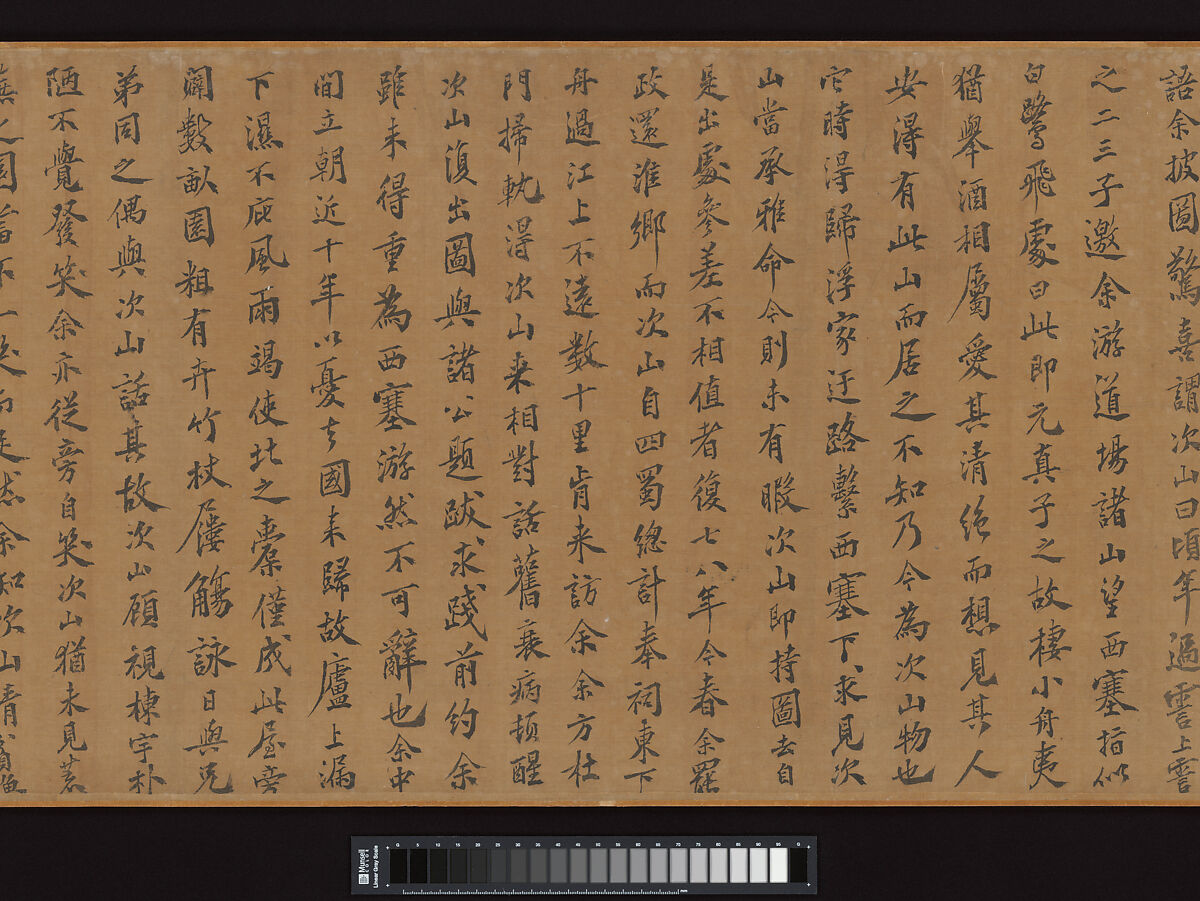 語余披圖驚喜謂次山曰頃年過霅上霅
之二三子邀余游道場諸山望西塞指似
白鷺飛處曰此即元真子之故棲小舟夷
猶舉酒相屬愛其清絕而想見其人
安得有此山而居之不知乃今為次山物也
它時得歸浮家迂路繫西塞下求見次
山當承雅命今則未有暇次山即持圖去自
是出處參差不相值者復七八年今春余罷
政還淮鄉而次山自四蜀總計奉祠東下
舟過江上不遠數十里肯来訪余余方杜
門掃軌得次山来相對話舊衰病頓醒
次山復出圖與諸公題跋求踐前約余
雖未得重為西塞游然不可辭也余中
間立朝近十年以憂去國来歸故廬上漏
下濕不庇風雨竭使北之橐僅成此屋旁
闢數畝園粗有卉竹杖屨觴詠日與兄
弟同之偶與次山話其故次山顧視棟宇朴
陋不覺發笑余亦從旁自笑次山猶未見荒
蕪之園 不一笑而 然余知次山清
Munsell COLOR
Linear Gray Scale
0 5 10 15 20 25 30 35 40 45 50 55 60 65 70 75 80 85 90 95 0
mm